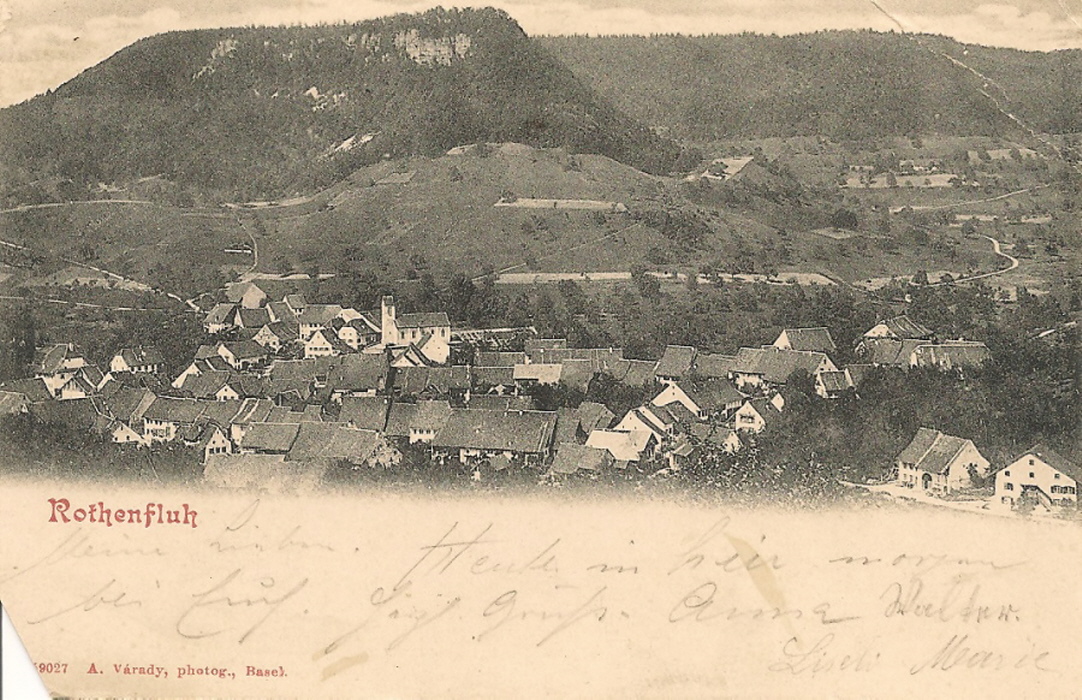 Rothenfluh
Meine Lieben. Heute in morgen
bei Euch. Gruß. Anna Walter.
Liseli Marie
9027 A. Várady, photog., Basel.